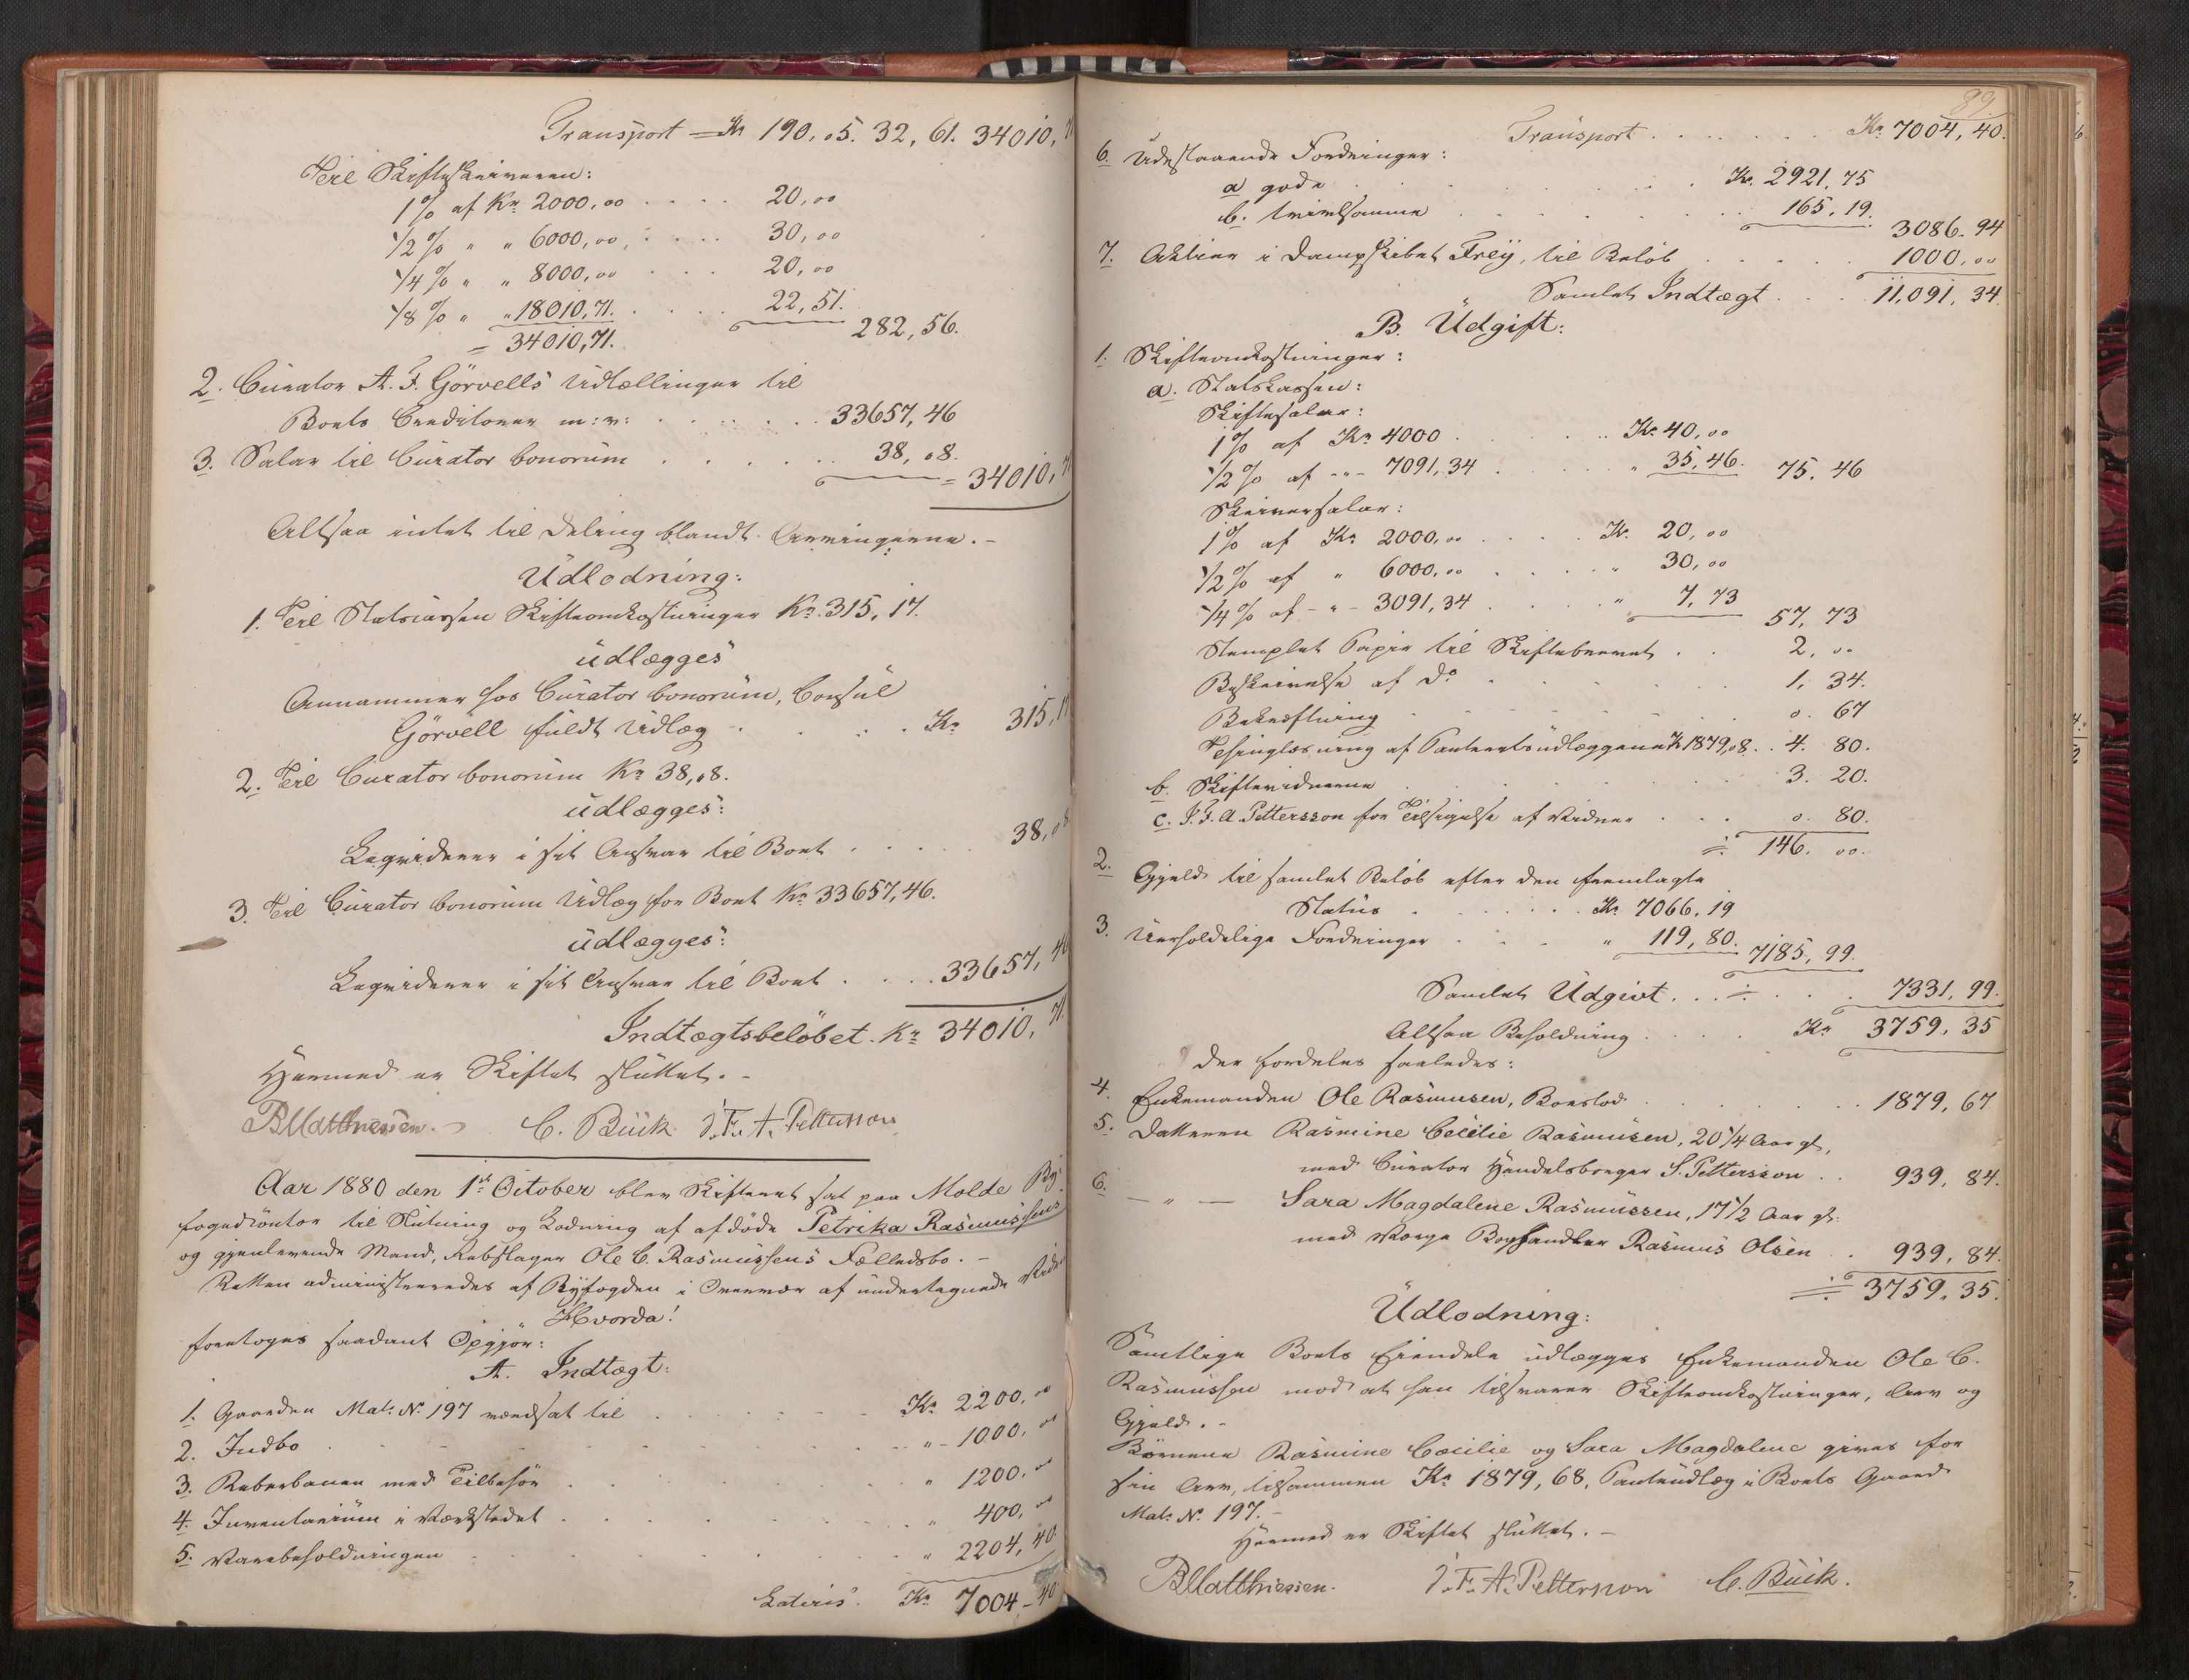 Transport = Kr 190,05. 32,61. 34010,71
Til Skifteskriveren:
1% af Kr. 2000,00 . . . . 20,00
1/2% " " 6000,00, . . . . 30,00
1/4% " " 8000,00 . . . . 20,00
1/8% " " 18010,71. . . . . 22,51.
= 34010,71. 282,56.
2. Curator A. F. Görvells Udtællinger til
Boets Creditorer m:v: . . . . . . 33657,46
3. Salar til Curator bonorum . . . . . 38,08.
= 34010,71
Altsaa intet til Deling blandt Arvingerne. -
Udlodning:
1. Til Statscassen Skifteomkostninger Kr. 315,17.
udlægges
Annammer hos Curator bonorum, Consul
Görvell fuldt Udlæg . . . . Kr. 315,17
2. Til Curator bonorum Kr 38,08.
udlægges:
Liqviderer i sit Ansvar til Boet . . . . . 38,08
3. Til Curator bonorum Udlæg for Boet Kr. 33657,46.
udlægges:
Liqviderer i sit Ansvar til Boet . . . . 33657,46
Indtægtsbeløbet. Kr. 34010,71.
Hermed er Skiftet sluttet. -
BMatthiessen. C. Buck. J. F. A. Pettersson
Aar 1880 den 1ste October blev Skifteret sat paa Molde By-
fogedcontor til Slutning og Lodning af afdøde Petrika Rasmussens
og gjenlevende Mand, Rebslager Ole C. Rasmussens Fælledsbo. -
Retten administreredes af Byfogden i Overvær af undertegnede Vidner
Hvorda!
foretoges saadant Opgjør:
A. Indtægt:
1. Gaarden Mat. No. 197 værdsat til . . . . . . Kr. 2200,00
2. Indbo . . . . . . " - 1000,00
3. Reberbanen med Tilbehør . . . . . . " 1200,00
4. Inventarium i Værkstedet . . . . . . " 400,00
5. Varebeholdningen . . . . . . " 2204,40
Lateris. Kr. 7004-40
89
Transport . . . . . . . Kr. 7004,40.
6. Udestaaende Fordringer:
a gode . . . . . . . Kr. 2921,75
b. tvivlsomme . . . . . . . 165,19.
3086.94
7. Aktier i Dampskibet Frey, til Beløb . . . . . 1000,00
Samlet Indtægt . . . 11,091,34
B. Udgift:
1. Skifteomkostninger:
a. Statskassen:
Skiftesalær:
1% af Kr. 4000 . . . . . . Kr. 40,00
1/2% af -"- 7091,34 . . . . " 35,46. 75.46
Skriversalær:
1% af Kr. 2000,00 . . . . Kr. 20,00
1/2% af " 6000,00 . . . . " 30,00
1/4% af -"- 3091,34 . . . . " 7,73
57,73
Stemplet Papir til Skiftebrevet . . 2,00
Beskrivelse af Do . . . . . 1.34.
Bekræftning . . . . . 0.67
Thinglæsning af Panteretsudlæggene Kr 1879,68 . . 4.80.
b. Skiftevidnerne . . . . . 3.20.
c. J. F. A. Pettersson for Tilsigelse af Vidner . . . 0.80.
÷ 146.00.
2. Gjæld til samlet Beløb efter den fremlagte
Status . . . . . . Kr. 7066,19
3. Uerholdelige Fordringer . . . . " 119,80. 7185,99.
Samlet Udgivt . . . ÷ . . . 7331,99.
Altsaa Beholdning . . . . Kr. 3759,35
der fordeles saaledes:
4. Enkemanden Ole Rasmusen, Boeslod . . . . . . 1879,67
5. Datteren Rasmine Cecilie Rasmusen, 20 1/4 Aar gl,
med Curator Handelsborger S. Pettersson . . 939,84.
6. - " - Sara Magdalene Rasmussen, 17 1/2 Aar gl.
med Værge Boghandler Rasmus Olsen . . 939,84.
÷ 3759.35.
Udlodning:
Samtlige Boets Eiendele udlægges Enkemanden Ole C.
Rasmussen mod at han tilsvarer Skifteomkostninger, Arv og
Gjæld. -
Børnene Rasmine Cæcilie og Sara Magdalene gives for
sin Arv, tilsammen Kr. 1879,68, Panteudlæg i Boets Gaard
Mat. No. 197. -
Hermed er Skiftet sluttet. -
BMatthiessen. J. F. A. Pettersson C. Buck.